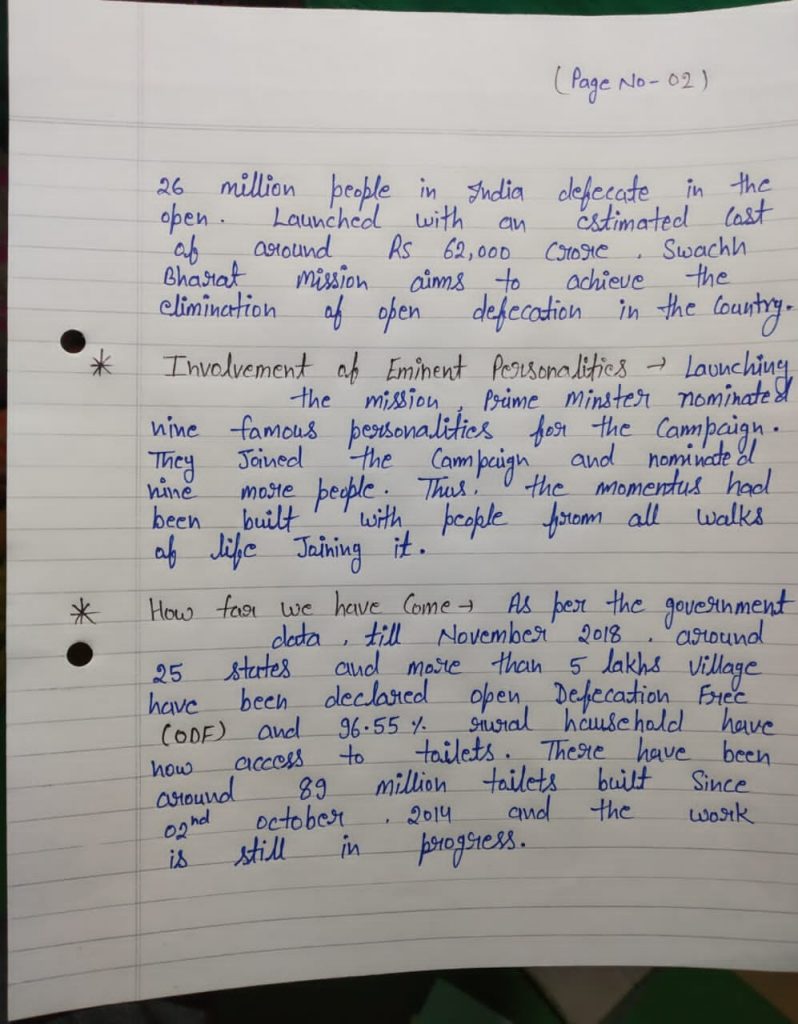 (Page No - 02)
26 million people in India defecate in the
open. Launched with an estimated Cost
of around Rs 62,000 Crore. Swachh
Bharat mission aims to achieve the
elimination of open defecation in the Country.
* Involvement of Eminent Personalities → Launching
the mission, Prime Minster nominated
nine famous personalities for the Campaign.
They Joined the Campaign and nominated
nine more people. Thus, the momentus had
been built with people from all walks
of life Joining it.
* How far we have Come → As per the government
data, till November 2018, around
25 states and more than 5 lakhs village
have been declared open Defecation Free
(ODF) and 96.55 % rural household have
now access to toilets. There have been
around 89 million toilets built Since
02nd october, 2014 and the work
is still in progress.